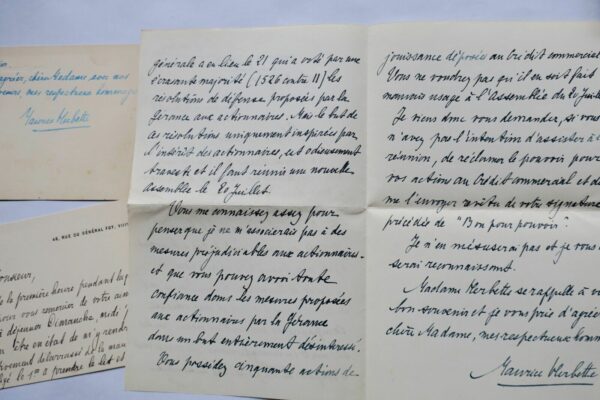 agréer, chère Madame, avec nos
mes respectueux hommages
Maurice Herbette
46, RUE DU GÉNÉRAL FOY
Monsieur,
la première heure pendant
pour vous remercier de votre
à déjeuner Dimanche, midi
être en état de m'y rendre
débarrassé de la
le 1er à prendre le lit et
générale a eu lieu le 21 qui a voté par une
écrasante majorité (1526 contre 11) les
résolutions de défense proposées par la
Gérance aux actionnaires. Mais le but de
ces résolutions uniquement inspirées par
l'intérêt des actionnaires, est odieusement
travesti et il faut réunir une nouvelle
assemblée le 20 juillet.
Vous me connaissez assez pour
penser que je ne m'associerais pas à des
mesures préjudiciables aux actionnaires.
et que vous pouvez avoir toute
confiance dans les mesures proposées
aux actionnaires par la Gérance
dans un but entièrement désintéressé.
Vous possédez cinquante actions de
jouissance déposées au Crédit commercial
Vous ne voudrez pas qu'il en soit fait
mauvais usage à l'Assemblée du 20 juillet
Je viens donc vous demander, si vous
n'avez pas l'intention d'assister à
réunion, de réclamer le pouvoir pour
vos actions au Crédit commercial et de
me l'envoyer revêtu de votre signature
précédée de "Bon pour pouvoir".
Je n'en mésuserai pas et je vous
serai reconnaissant.
Madame Herbette se rappelle à
bon souvenir et je vous prie d'agréer
chère Madame, mes respectueux
Maurice Herbette